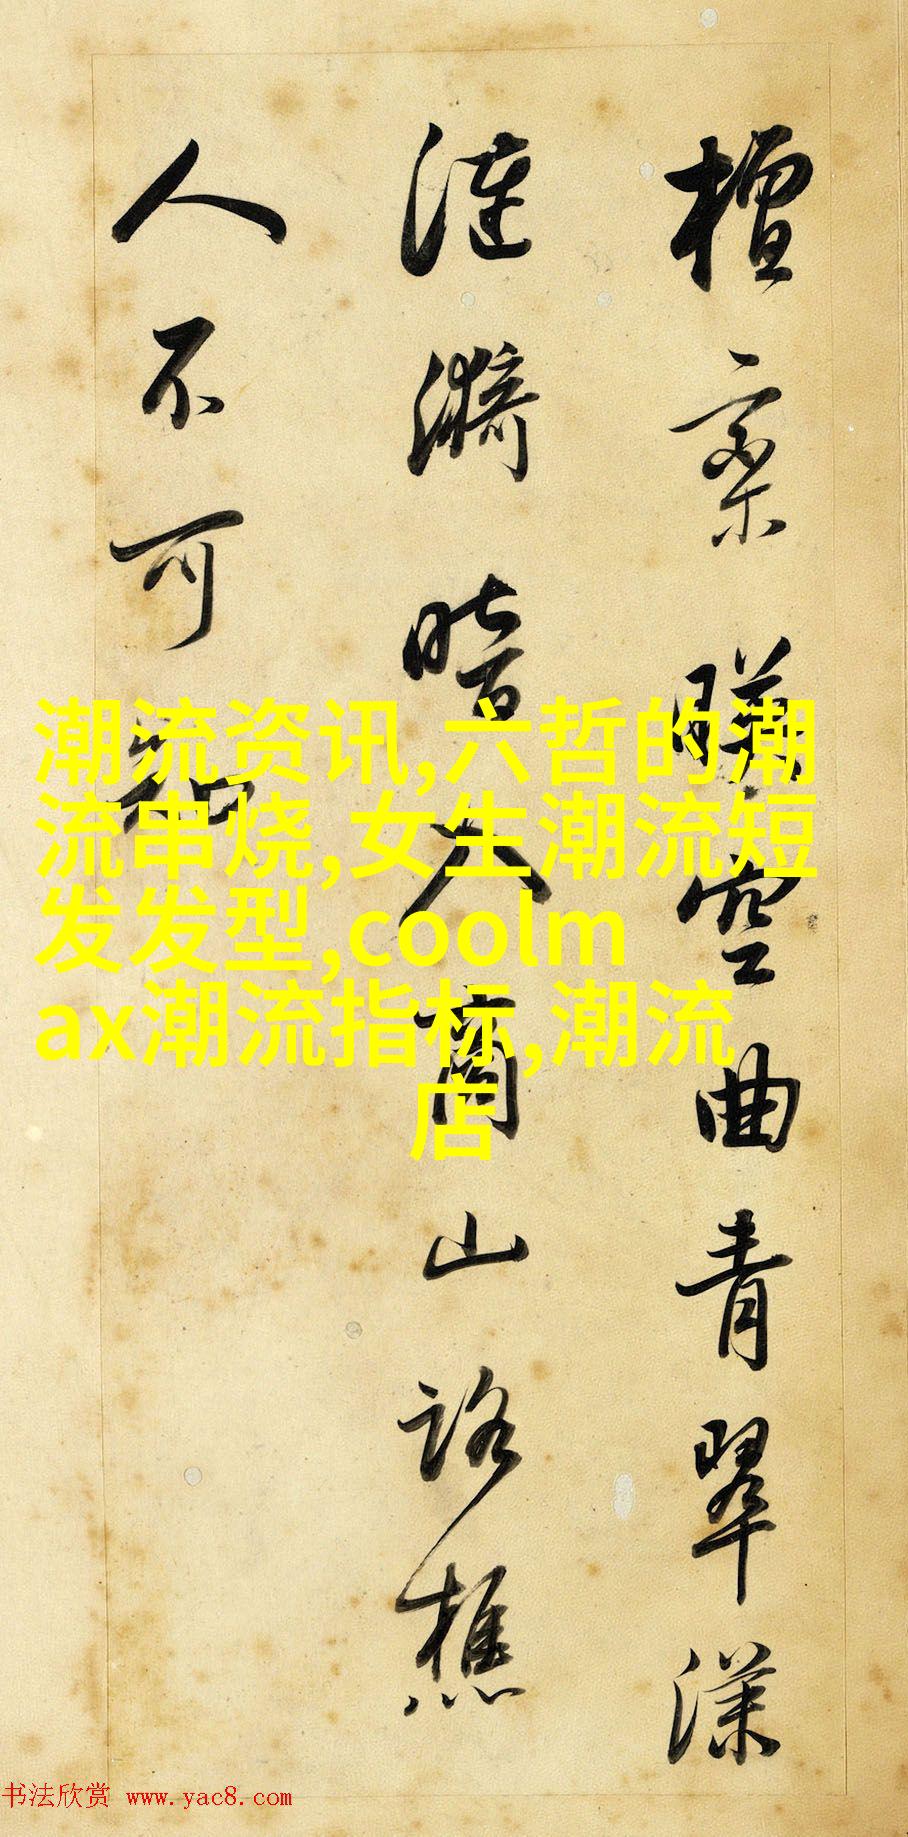 檀栾暎空曲青翠漾
漣漪暗入商山路樵
人不可知
潮流资讯,六哲的潮
流串烧,女生潮流短
发发型,coolm
ax潮流指标,潮流
店
书法欣赏 www.yac8.com